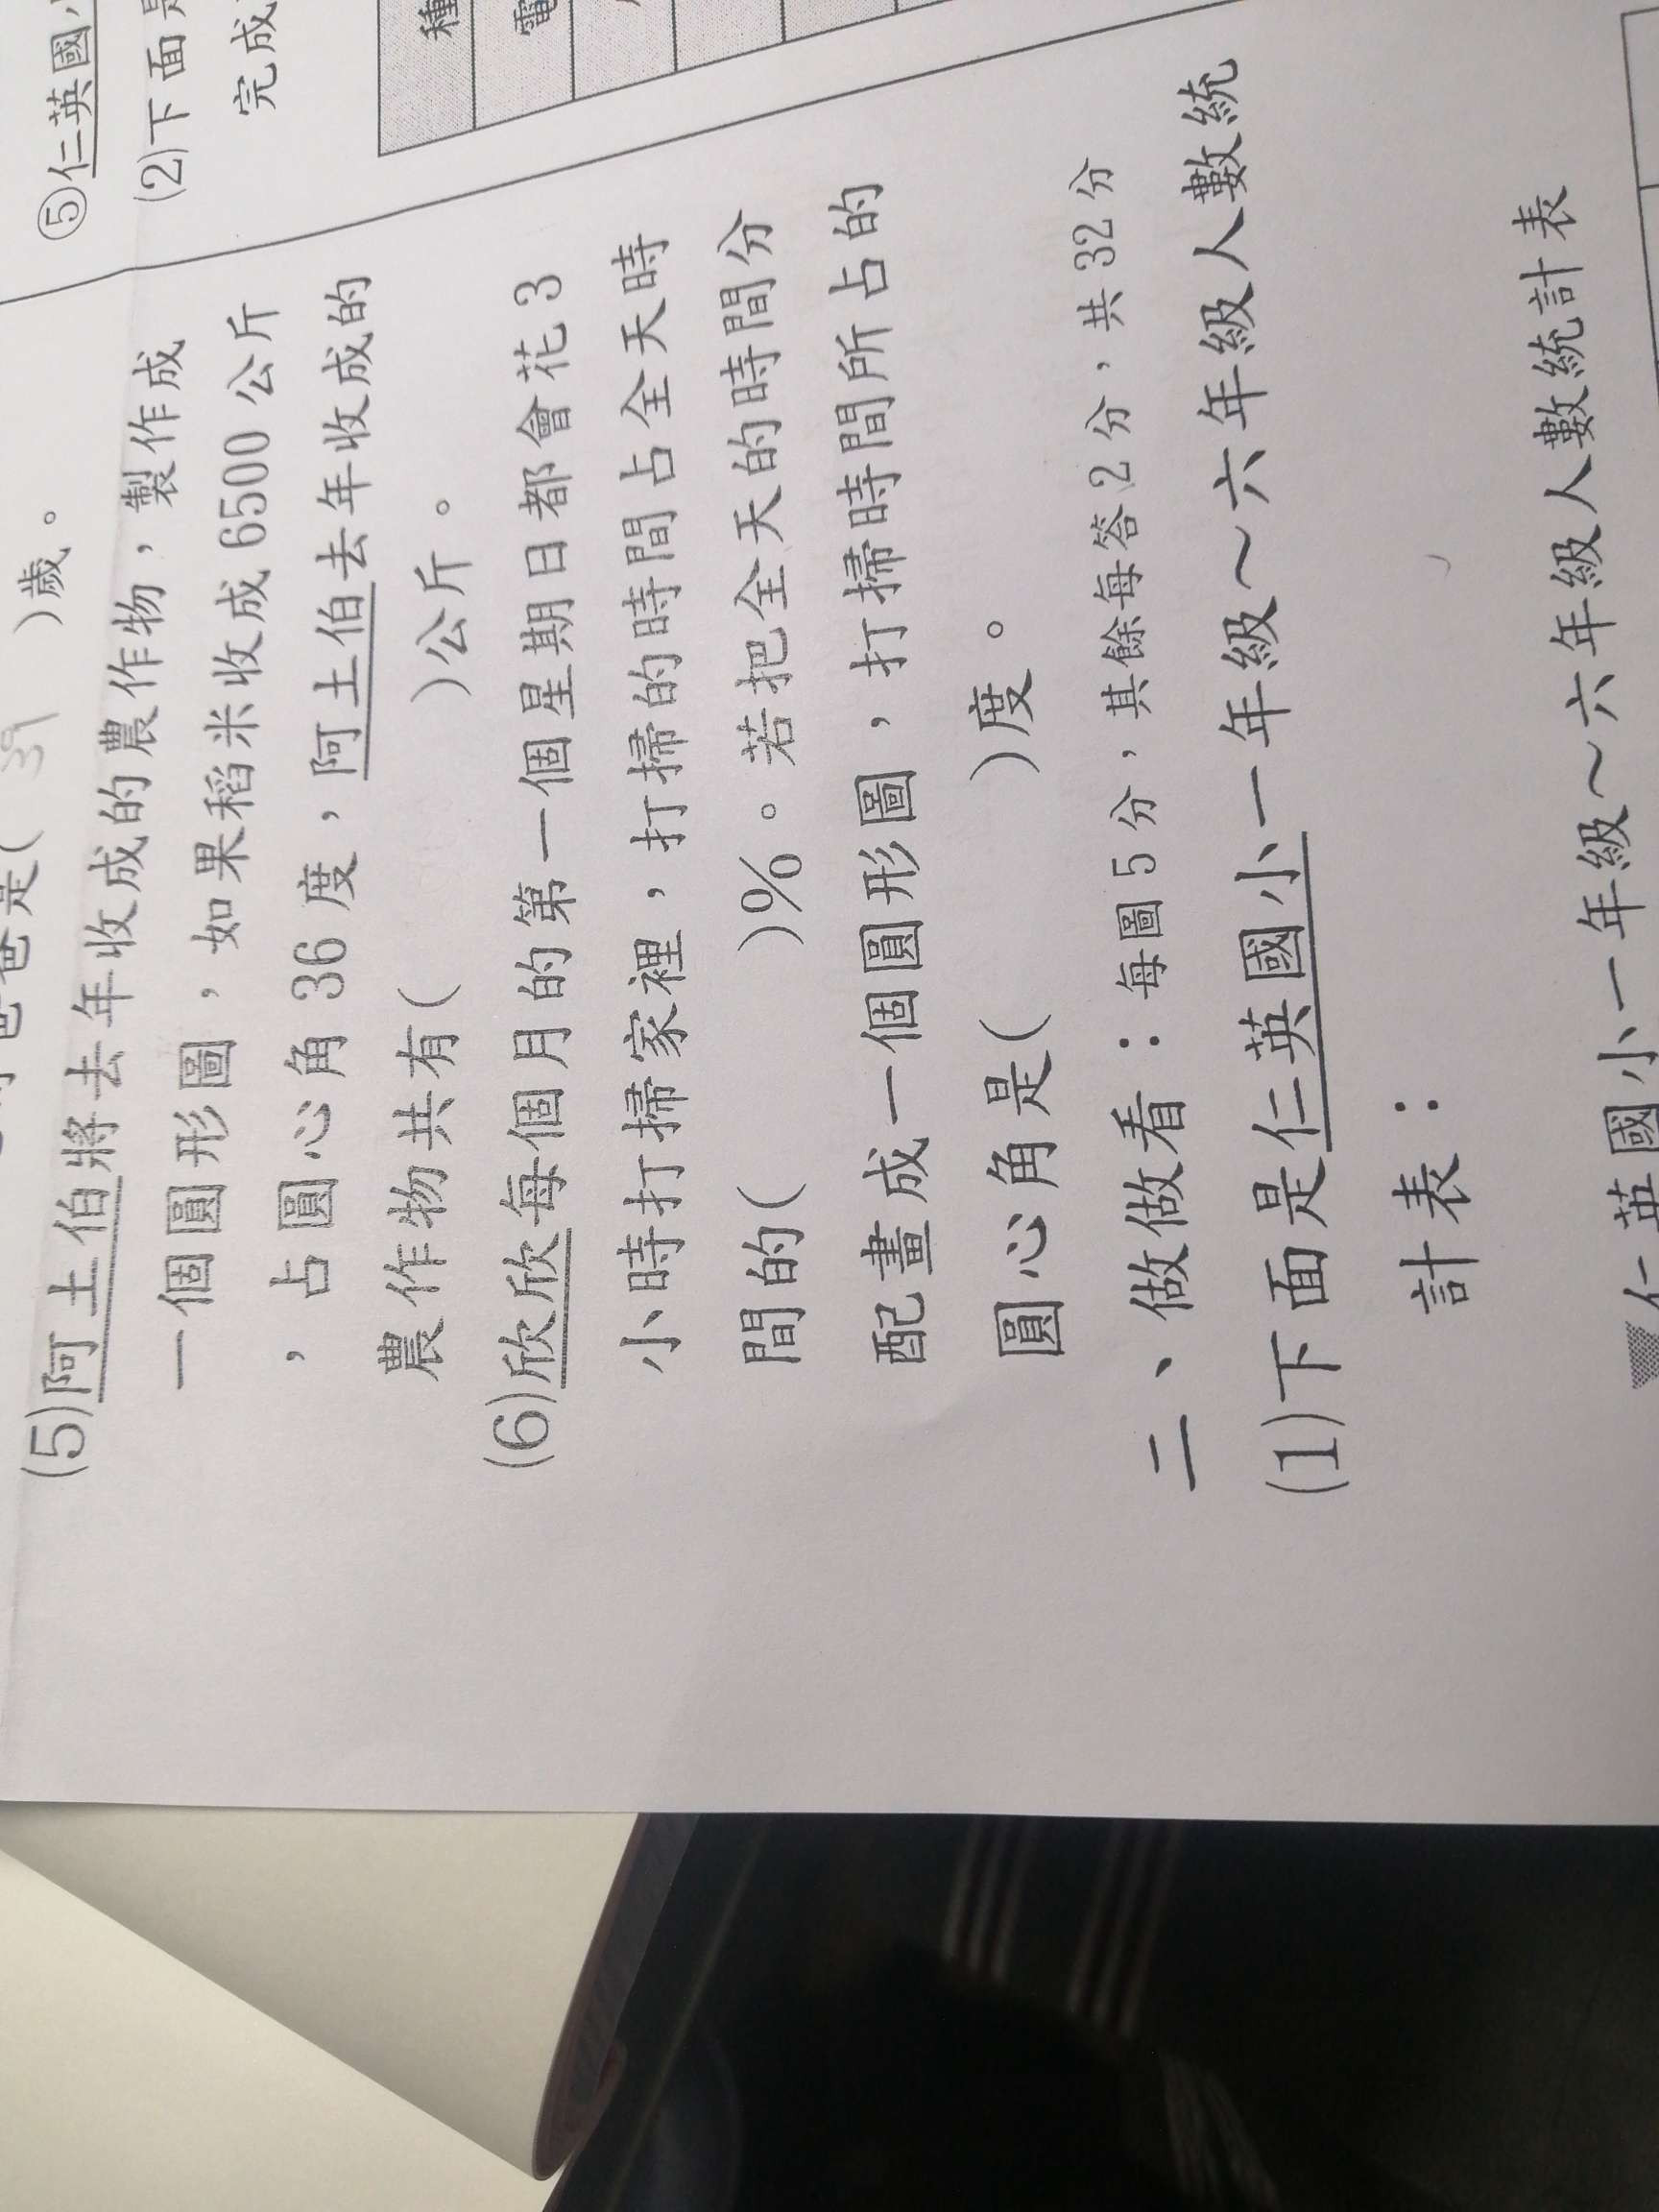 爸爸是( 39 )歲。
(5)阿土伯將去年收成的農作物，製作成
一個圓形圖，如果稻米收成6500公斤
，占圓心角36度，阿土伯去年收成的
農作物共有( )公斤。
(6)欣欣每個月的第一個星期日都會花3
小時打掃家裡，打掃的時間占全天時
間的( )%。若把全天的時間分
配畫成一個圓形圖，打掃時間所占的
圓心角是( )度。
二、做做看：每圖5分，其餘每答2分，共32分
(1)下面是仁英國小一年級～六年級人數統
計表：
仁英國小一年級～六年級人數統計表
⑤仁英國
(2)下面是
完成
種
電